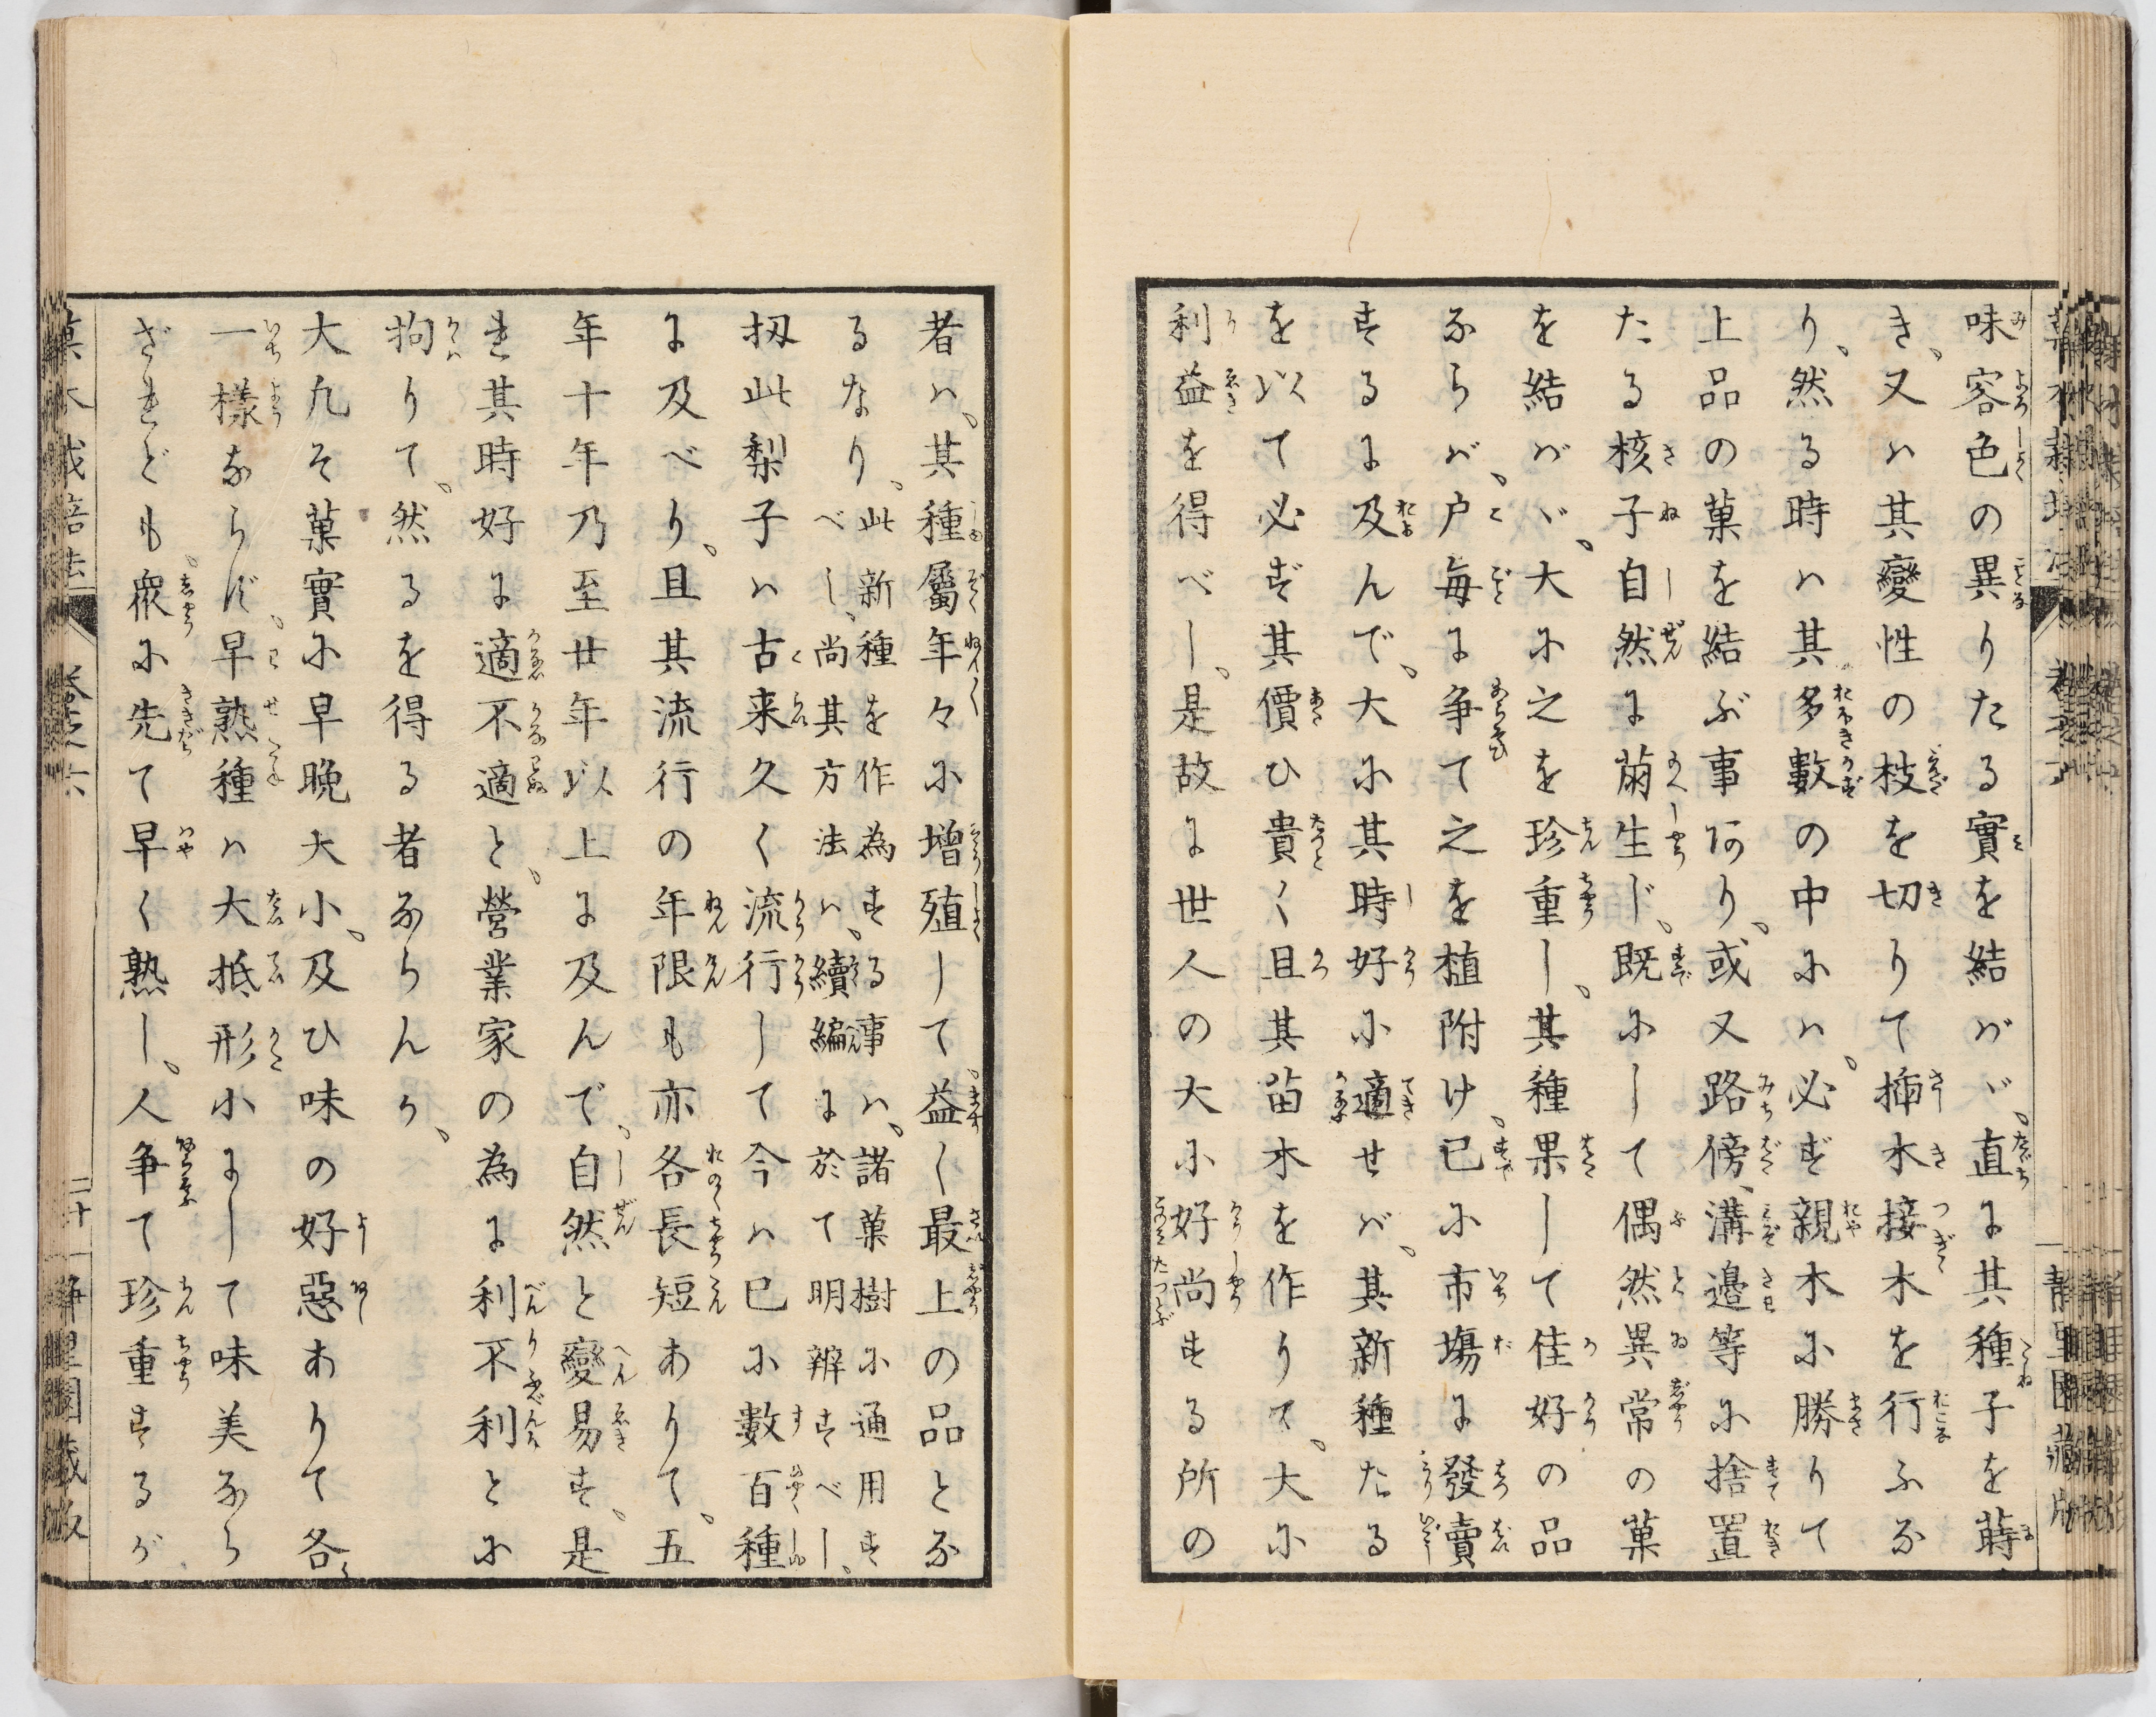 味容色の異りたる實を結バゞ、直に其種子を蒔
き、又ハ其變性の枝を切りて揷木接木を行ふな
り、然る時ハ其多數の中にハ、必ず親木に勝りて
上品の菓を結ぶ事阿り、或又路傍、溝邉等に捨置
たる核子自然に萠生じ、既にして偶然異常の菓
を結バゞ、大に之を珍重し、其種果して佳好の品
ならバ、戸毎に争て之を植附け、已に市塲に發賣
するに及んで、大に其時好に適せバ、其新種たる
を以て必ず其價ひ貴く且其苗木を作りて、大に
利益を得べし、是故に世人の大に好尚する所の
者ハ、其種屬年々に増殖して、益〱最上の品とな
るなり、此新種を作為する事ハ、諸菓樹に通用す
べし、尚其方法ハ、續編に於て明辨すべし、
扨此梨子ハ古来久く流行して今ハ已に數百種
に及べり、且其流行の年限も亦各長短ありて、五
年十年乃至廿年以上に及んで、自然と變易す、是
れ其時好に適不適と、營業家の為に利不利とに
拘りて、然るを得る者ならんか、
大凢そ菓實に早晩大小、及ひ味の好惡ありて各
一樣ならず、早熟種ハ大抵形小にして味美なら
ざれども、衆に先て早く熟し、人争て珍重するが
菓木栽培法 卷之六 二十 静里園藏版